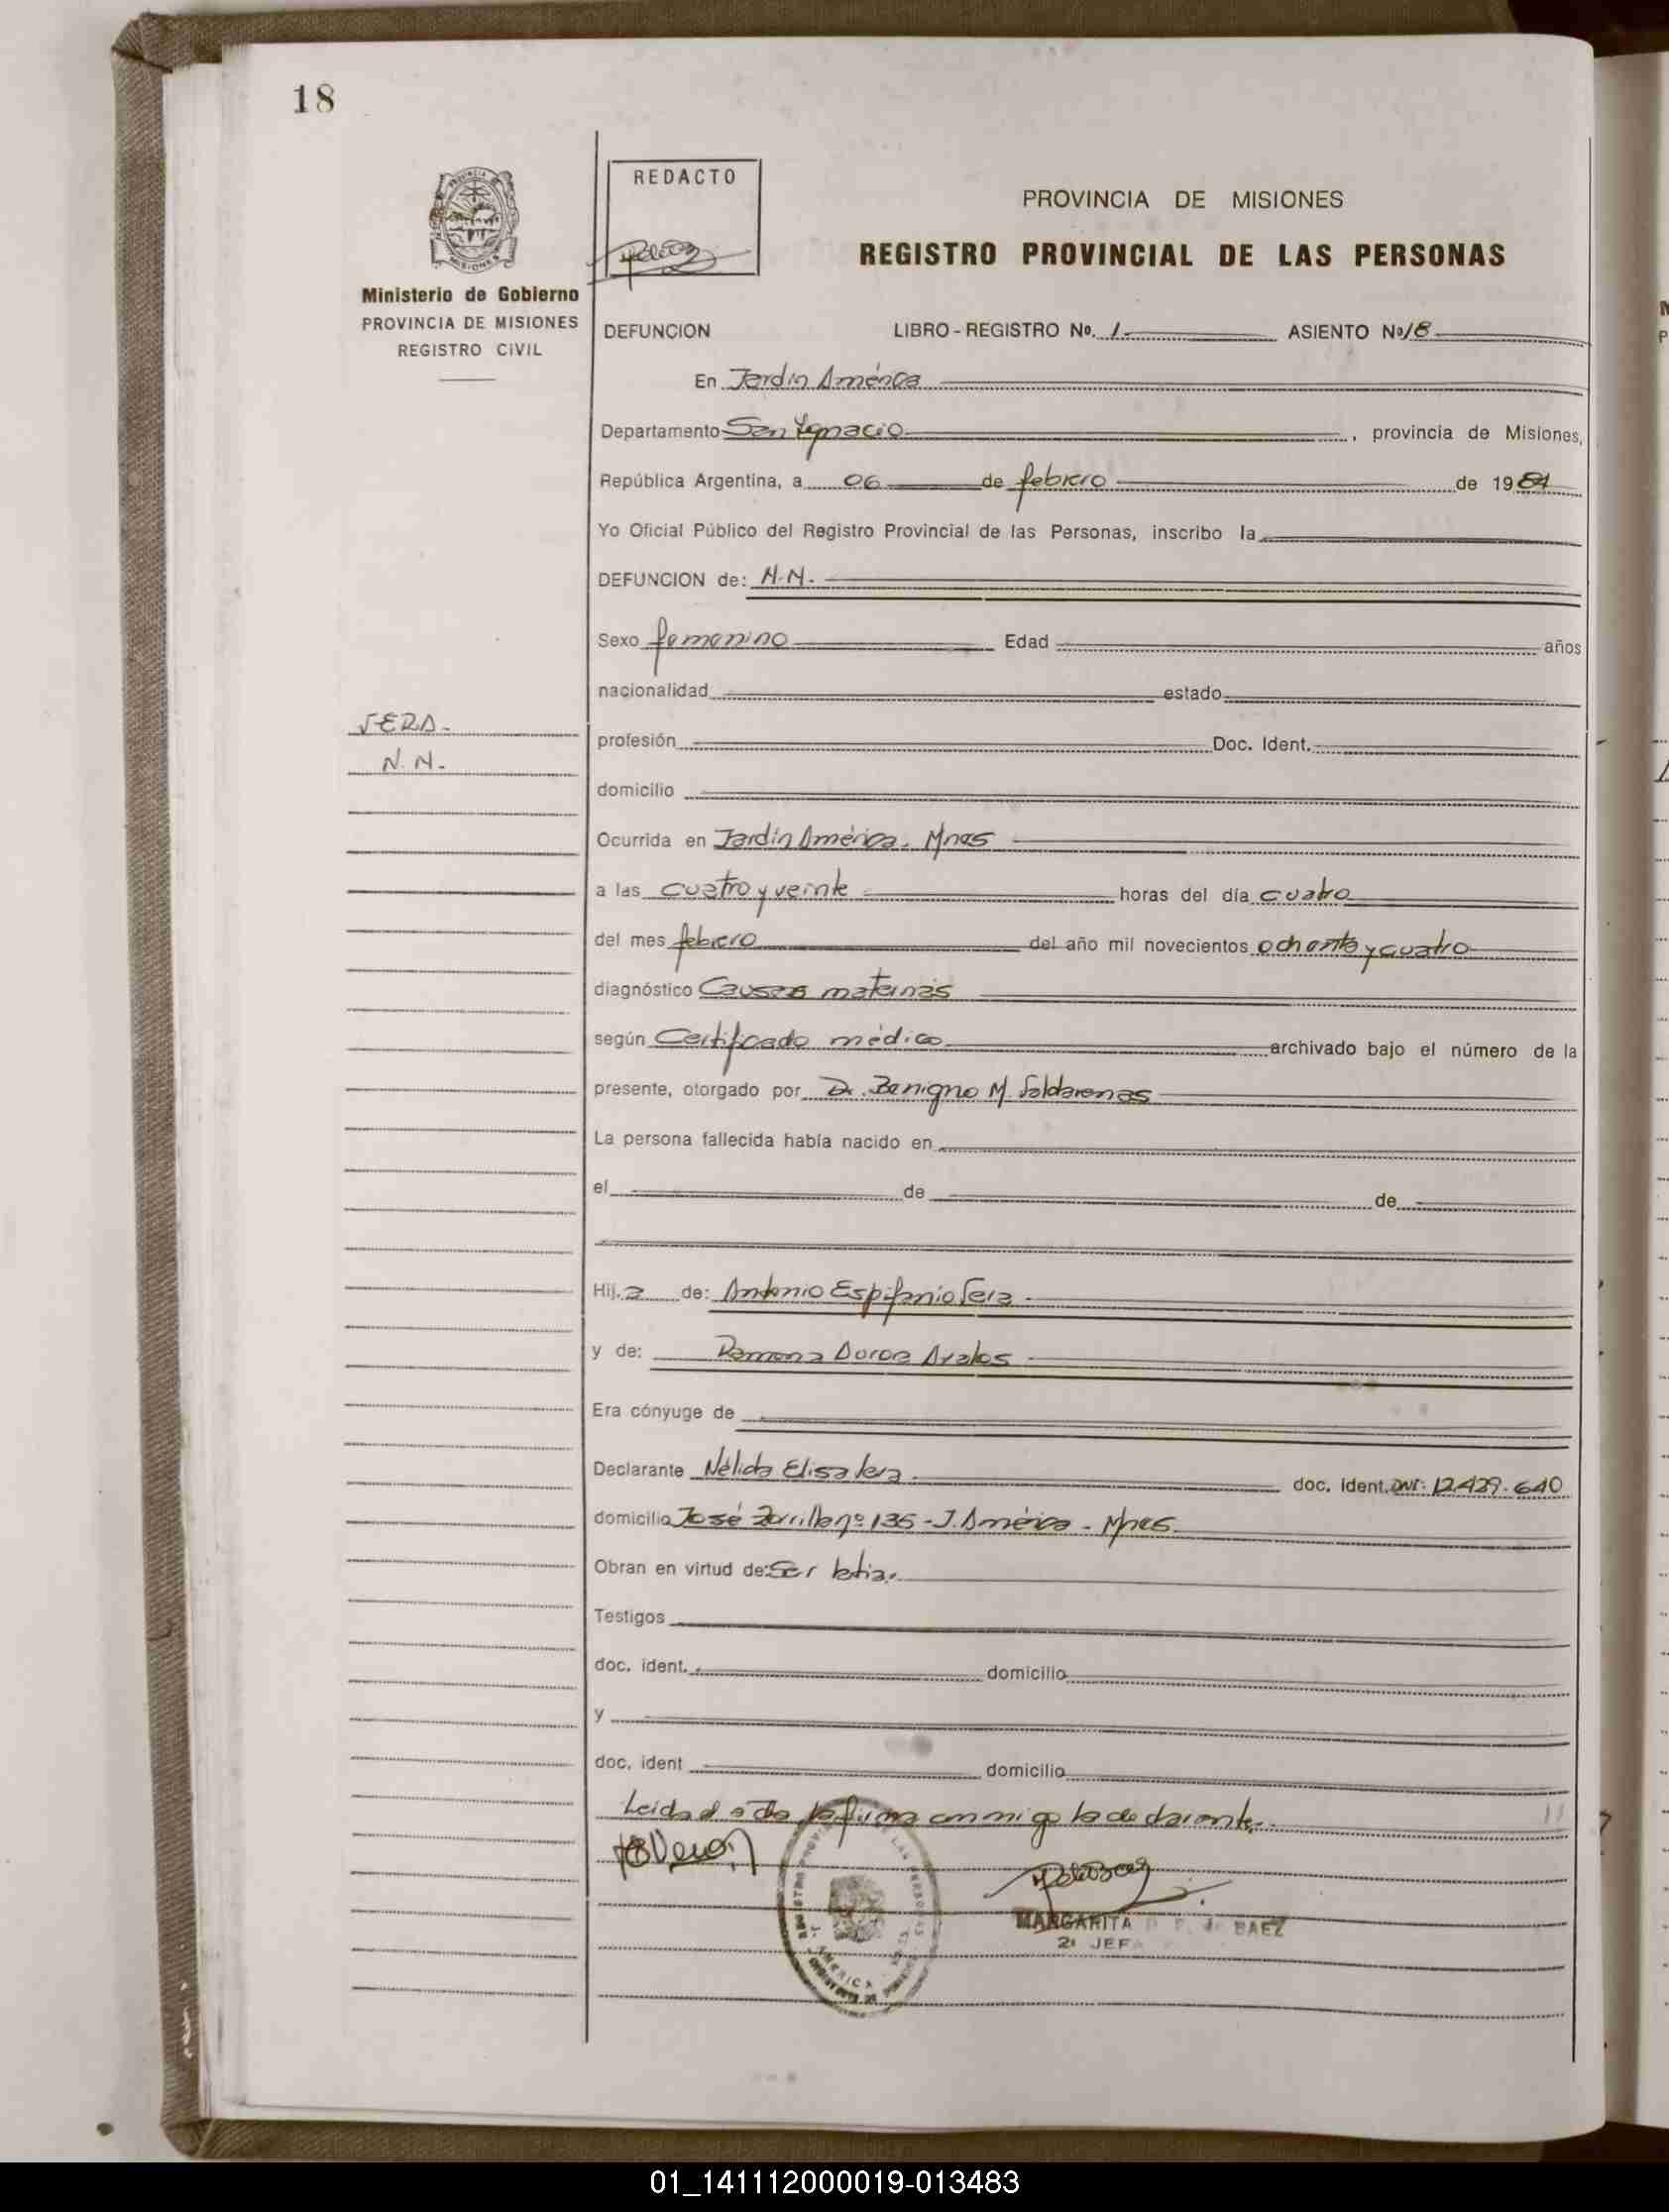 18
REDACTO
PROVINCIA DE MISIONES
REGISTRO PROVINCIAL DE LAS PERSONAS
Ministerio de Gobierno
PROVINCIA DE MISIONES
REGISTRO CIVIL
DEFUNCION LIBRO-REGISTRO No. 1 ASIENTO No 18
En Jardín América
Departamento San Ignacio, provincia de Misiones,
República Argentina, a 06 de febrero de 1984
Yo Oficial Público del Registro Provincial de las Personas, inscribo la
DEFUNCION de: N.N.
Sexo femenino Edad años
nacionalidad estado
VERA.
N.N.
profesión Doc. Ident.
domicilio
Ocurrida en Jardín América. Mnes
a las cuatro y veinte horas del día cuatro
del mes febrero del año mil novecientos ochenta y cuatro
diagnóstico Causas maternas
según Certificado médico archivado bajo el número de la
presente, otorgado por Dr. Benigno M.
La persona fallecida había nacido en
el de de
Hij a de: Antonio Espifanio Vera.
y de: Ramona Avalos
Era cónyuge de
Declarante Nélida Elisa Vera. doc. ident. DNI: 12.429.640
domicilio José Zorrilla nº 135 - J. América - Mnes
Obran en virtud de: Ser la tia.
Testigos
doc. ident. domicilio
y
doc. ident domicilio
Leida el acta la firma conmigo la declarante.
MARGARITA de BAEZ
JEFA
01_141112000019-013483